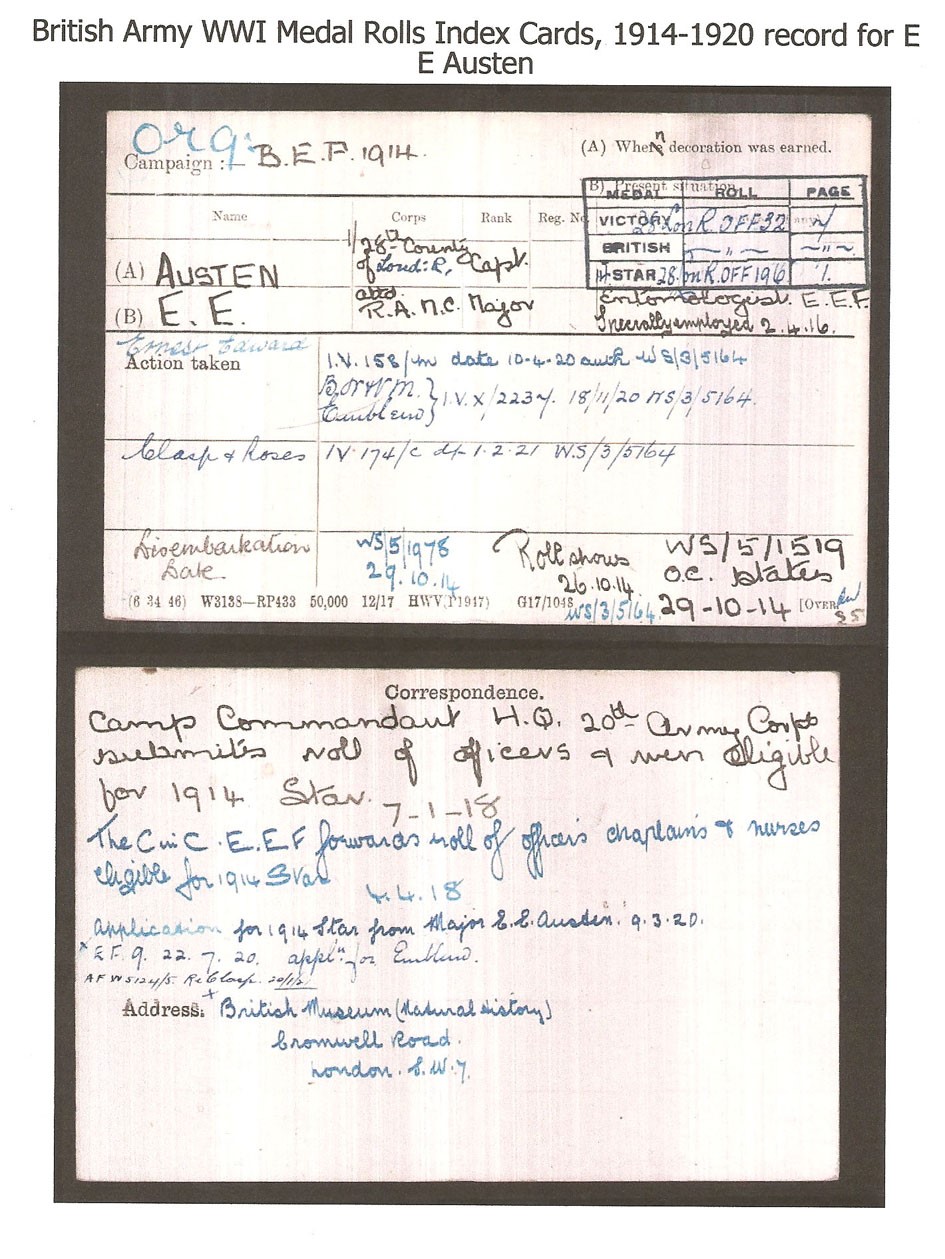 British Army WWI Medal Rolls Index Cards, 1914-1920 record for E
E Austen
Org.
Campaign :— B.E.F. 1914.
(A) Where decoration was earned.
n
(B) Present situation
MEDAL ROLL PAGE
Name Corps Rank Reg. No.
VICTORY 28 Lon R. OFF 32
BRITISH — „ — — „ —
14 STAR 28. Lon R. OFF 196 1.
(A) AUSTEN 1/28th County of Lond: R, Capt.
(B) E. E. attd. R.A.M.C. Major
Entomologist. E.E.F.
Specially employed 2.4.16.
Ernest Edward
Action taken
I.V. 158/ date 10-4-20 auth WS/3/5164
B.W & V M. } I.V.X/2237. 18/11/20 WS/3/5164.
Emblem }
Clasp & Roses IV 174/C dt 1.2.21 W.S/3/5164
Disembarkation
Date.
WS/5/1978
29.10.14
Roll shows
26.10.14.
WS/3/5164.
WS/5/1519
O.C. States
29-10-14
(6 34 46) W3138—RP433 50,000 12/17 HWV(P1947) G17/1048 [OVER.
Correspondence.
Camp Commandant H.Q. 20th Army Corps
submits roll of officers & men eligible
for 1914 Star. 7-1-18
The C in C. E.E.F forwards roll of officers chaplains & nurses
eligible for 1914 Star 4.4.18
Application for 1914 Star from Major E.E. Austen. 9.3.20.
x E F. 9. 22. 7. 20. appln for Emblem.
AF W5124/5. Re Clasp.
Address. + British Museum (Natural History)
Cromwell Road.
London. S.W.7.